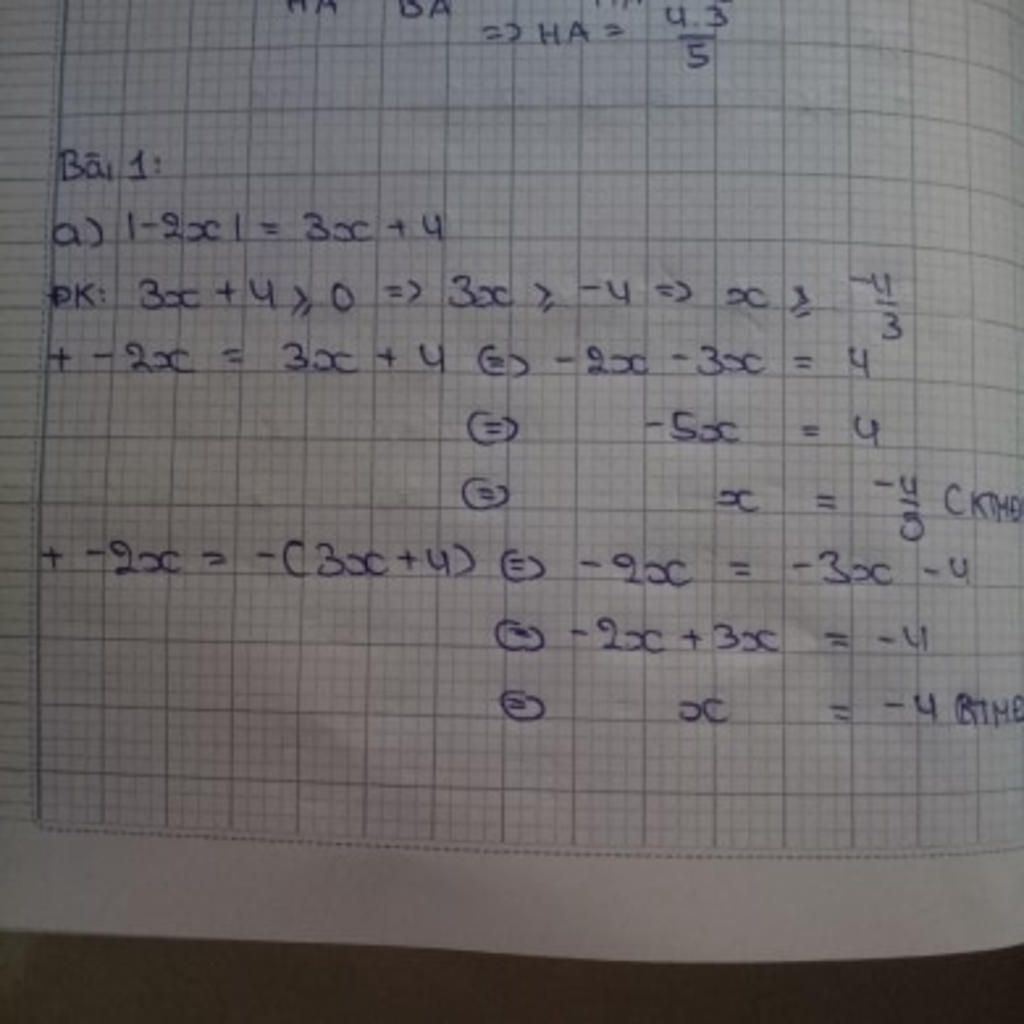 => HA = 4.3/5
Bài 1:
a) |-2x| = 3x + 4
ĐK: 3x + 4 ≥ 0 => 3x ≥ -4 => x ≥ -4/3
+ -2x = 3x + 4 <=> -2x - 3x = 4
<=> -5x = 4
<=> x = -4/5 (KTMĐ
+ -2x = -(3x+4) <=> -2x = -3x - 4
<=> -2x + 3x = -4
<=> x = -4